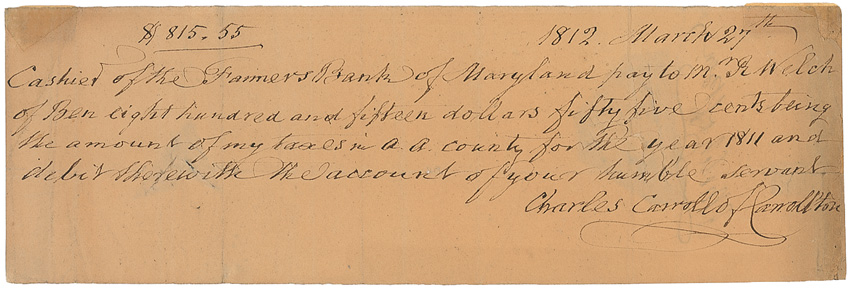 $ 815.55
1812. March 27th
Cashier of the Farmers Bank of Maryland pay to Mr. R Welch
of Ben eight hundred and fifteen dollars fifty five cents being
the amount of my taxes in A. A. county for the year 1811 and
debit therewith the account of your humble servant
Charles Carroll of Carrollton